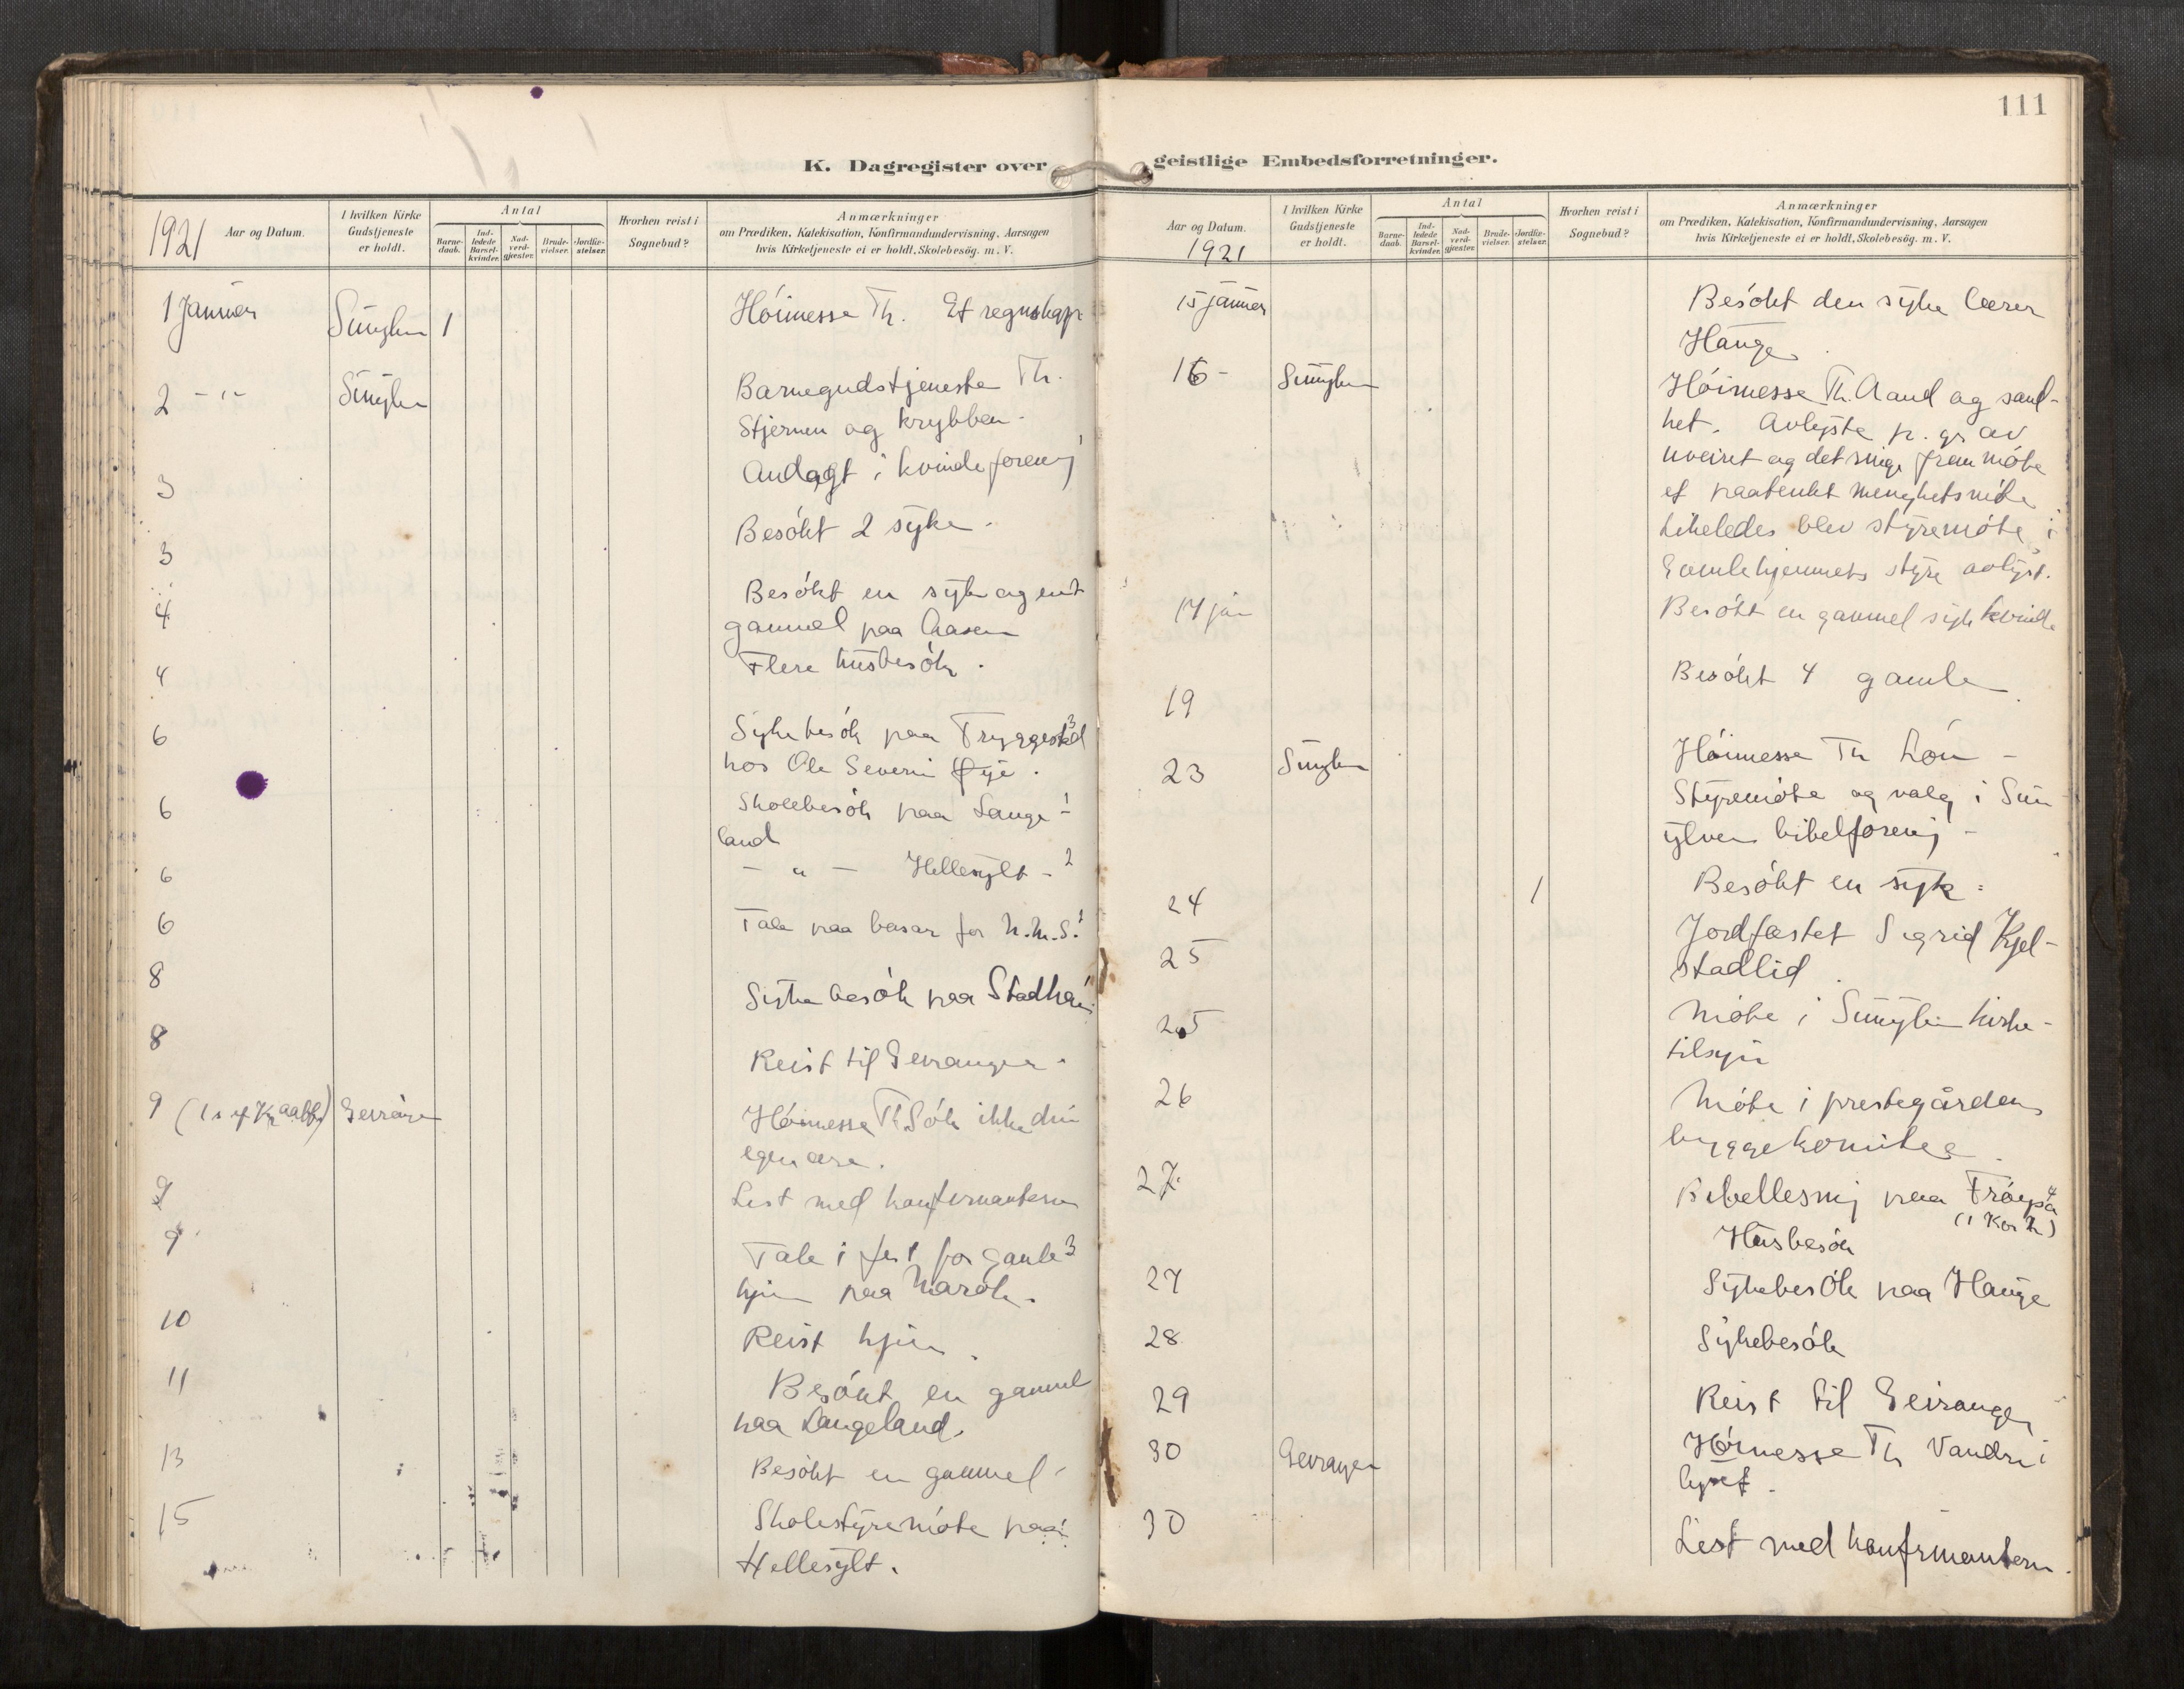 111
K. Dagregister over
geistlige Embedsforretninger.
1921
Aar og Datum.
I hvilken Kirke Gudstjeneste er holdt.
Antal
Barne-daab.
Ind-ledede Barsel-kvinder.
Nad-verd-gjester.
Brude-vielser.
Jordfæ-stelser.
Hvorhen reist i Sognebud?
Anmærkninger
om Prædiken, Katekisation, Konfirmandundervisning, Aarsagen
hvis Kirketjeneste ei er holdt, Skolebesøg. m. V.
1 Januar Sunylven 1 Høimesse Th. Et regnskap
2 -"- Sunylven Barnegudstjeneste Th.
Stjernen og krybben.
3 Andagt i kvindeforening
3 Besøkt 2 syke.
4 Besøkt en syk og ent
gammel paa Aasen
4 Flere husbesøk.
6 Sykebesøk paa Tryggestad 3
hos Ole Severin Øye.
6 Skolebesøk paa Lange- 1
land
6 - " - Hellesylt - 2
6 Tale paa basar for N.M.S. 1
8 Sykebesøk paa
8 Reist til Geiranger.
9 Geiranger
Høimesse Th. Søk ikke din
egen ære.
9 Læst med konfirmanterne
9 Tale i fest for gamle 3
hjem paa Marok.
10 Reist hjem.
11 Besøkt en gammel
paa Langeland.
13 Besøkt en gammel
15 Skolestyremøte paa
Hellesylt.
Aar og Datum.
1921
I hvilken Kirke Gudstjeneste er holdt.
Antal
Barne-daab.
Ind-ledede Barsel-kvinder.
Nad-verd-gjester.
Brude-vielser.
Jordfæ-stelser.
Hvorhen reist i Sognebud?
Anmærkninger
om Prædiken, Katekisation, Konfirmandundervisning, Aarsagen
hvis Kirketjeneste ei er holdt, Skolebesøg. m. V.
15 januar Besøkt den syke lærer
Hauge.
16 - Sunylven Høimesse Th. Aand og sand-
het. Avlyste p. gr av
uveiret og det ringe frammøte
et paatenkt menighetsmøte
Likeledes blev styremøte i
Gamlehjemmets styre avlyst.
17 jan Besøkt en gammel syk kvinde
19 Besøkt 4 gamle
23 Sunylven Høimesse Th Løn -
Styremøte og valg i Sun
ylven bibelforening -
24 1 Besøkt en syk.
25 Jordfæstet Sigrid Kjel-
stadlid.
25 Møte i Sunylven kirke-
tilsyn
26 Møte i prestegårdens
byggekomite.
27. Bibellesning paa 4
(1 Kor )
Husbesøk
27 Sykebesøk paa Hauge
28 Sykebesøk
29 Reist til Geiranger
30 Geiranger Høimesse Th Vandre i
lyset.
30 Læst med konfirmanterne.